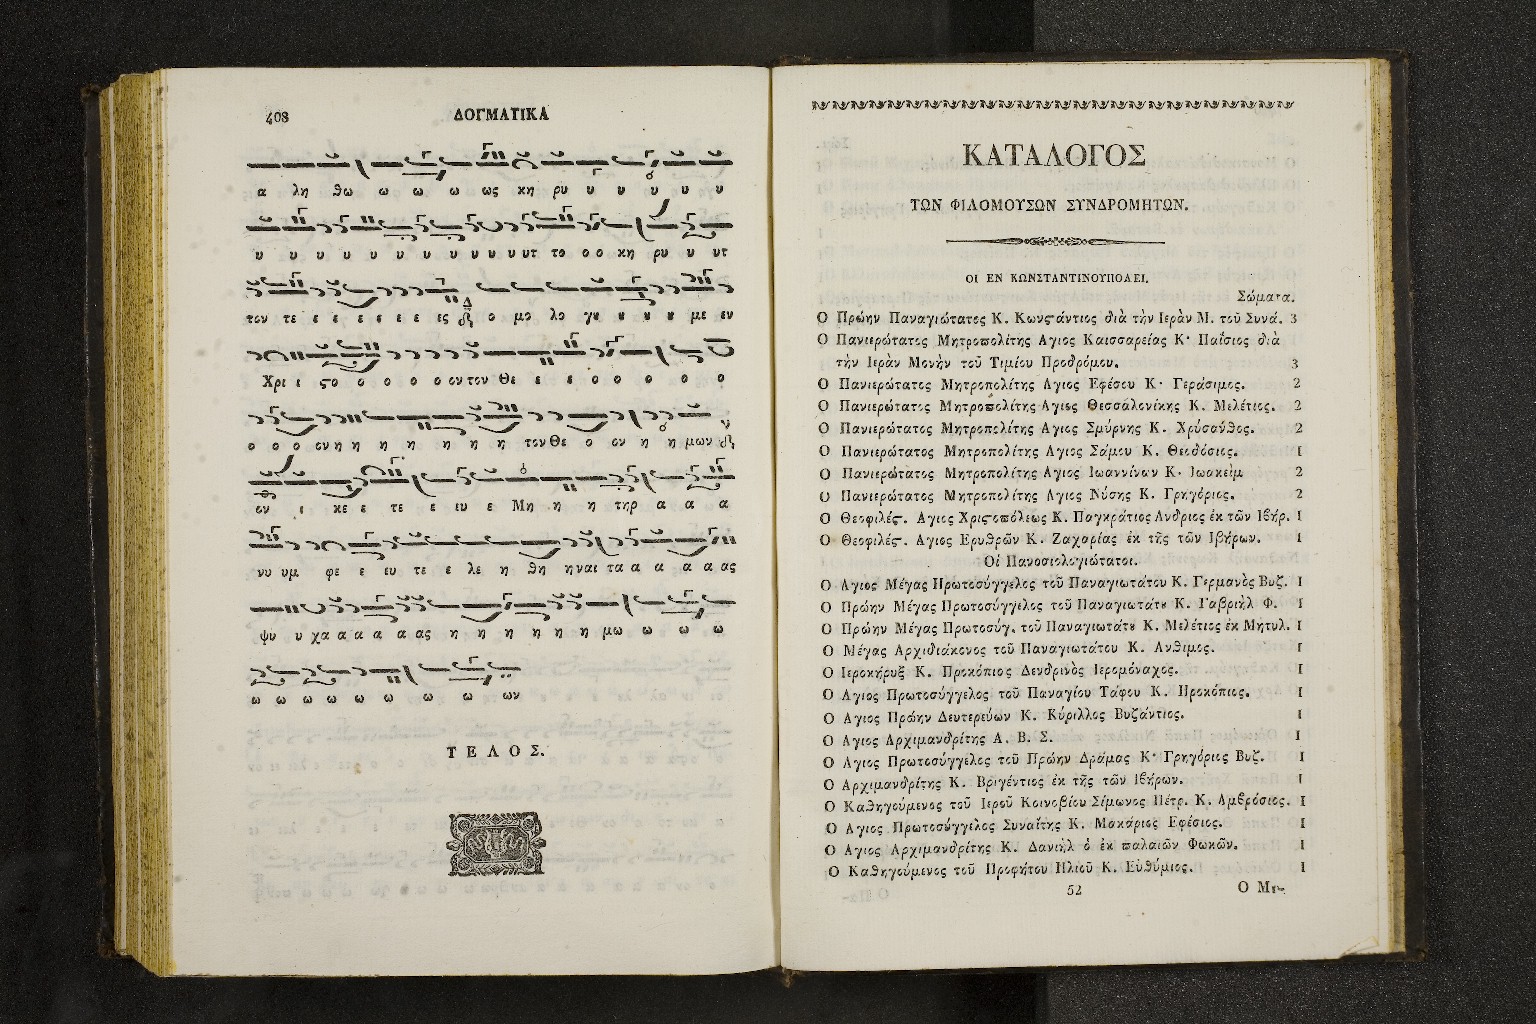 408 ΔΟΓΜΑΤΙΚΑ
α λη θω ω ω ω ως κη ρυ υ υ υ υ υ
υ υ υ υ υ υ υ υ υ υ υτ το ο ο κη ρυ υ υτ
τον τε ε ε ε ε ε ε ες ο μο λο γυ υ υ υ με εν
Χρι ι ϛο ο ο ο ο ον τον Θε ε ε ο ο ο ο ο ο
ο ο ο ον η η η η η η η τον Θε ο ον η η μων
ον ι κε ε τε ε ευ ε Μη η η τηρ α α α
νυ υμ φε ε ευ τε ε λε η θη η ναι τα α α α α ας
ψυ υ χα α α α α ας η η η η η η μω ω ω ω
ω ω ω ω ω ω ω ω ω ων
ΤΕΛΟΣ.
ΚΑΤΑΛΟΓΟΣ
ΤΩΝ ΦΙΛΟΜΟΥΣΩΝ ΣΥΝΔΡΟΜΗΤΩΝ.
ΟΙ ΕΝ ΚΩΝΣΤΑΝΤΙΝΟΥΠΟΛΕΙ.
Σώματα.
Ο Πρώην Παναγιώτατος Κ. Κωνϛάντιος διὰ τὴν Ιερὰν Μ. τοῦ Σινᾶ. 3
Ο Πανιερώτατος Μητροπολίτης Αγιος Καισσαρείας Κ· Παΐσιος διὰ
τὴν Ιερὰν Μονὴν τοῦ Τιμίου Προδρόμου. 3
Ο Πανιερώτατος Μητροπολίτης Αγιος Εφέσου Κ· Γεράσιμος. 2
Ο Πανιερώτατος Μητροπολίτης Αγιος Θεσσαλονίκης Κ. Μελέτιος. 2
Ο Πανιερώτατος Μητροπολίτης Αγιος Σμύρνης Κ. Χρύσανθος. 2
Ο Πανιερώτατος Μητροπολίτης Αγιος Σάμου Κ. Θεοδόσιος. 1
Ο Πανιερώτατος Μητροπολίτης Αγιος Ιωαννίνων Κ· Ιωακεὶμ 2
Ο Πανιερώτατος Μητροπολίτης Αγιος Νύσης Κ. Γρηγόριος. 2
Ο Θεοφιλέϛ. Αγιος Χριϛοπόλεως Κ. Παγκράτιος Ανδριος ἐκ τῶν Ιβήρ. 1
Ο Θεοφιλέϛ. Αγιος Ερυθρῶν Κ. Ζαχαρίας ἐκ τῆς τῶν Ιβήρων. 1
Οἱ Πανοσιολογιώτατοι.
Ο Αγιος Μέγας Πρωτοσύγγελος τοῦ Παναγιωτάτου Κ. Γερμανὸς Βυζ. 1
Ο Πρώην Μέγας Πρωτοσύγγελος τοῦ Παναγιωτάτȣ Κ. Γαβριὴλ Φ. 1
Ο Πρώην Μέγας Πρωτοσύγ. τοῦ Παναγιωτάτȣ Κ. Μελέτιος ἐκ Μητυλ. 1
Ο Μέγας Αρχιδιάκονος τοῦ Παναγιωτάτου Κ. Ανθιμος. 1
Ο Ιεροκήρυξ Κ. Προκόπιος Δενδρινὸς Ιερομόναχος. 1
Ο Αγιος Πρωτοσύγγελος τοῦ Παναγίου Τάφου Κ. Προκόπιος. 1
Ο Αγιος Πρώην Δευτερεύων Κ. Κύριλλος Βυζάντιος. 1
Ο Αγιος Αρχιμανδρίτης Α. Β. Σ. 1
Ο Αγιος Πρωτοσύγγελος τοῦ Πρώην Δράμας Κ· Γρηγόριος Βυζ. 1
Ο Αρχιμανδρίτης Κ. Βριγέντιος ἐκ τῆς τῶν Ιβήρων. 1
Ο Καθηγούμενος τοῦ Ιεροῦ Κοινοβίου Σίμωνος Πέτρ. Κ. Αμβρόσιος. 1
Ο Αγιος Πρωτοσύγγελος Σιναΐτης Κ. Μακάριος Εφέσιος. 1
Ο Αγιος Αρχιμανδρίτης Κ. Δανιὴλ ὁ ἐκ παλαιῶν Φωκῶν. 1
Ο Καθηγούμενος τοῦ Προφήτου Ηλιοῦ Κ. Εὐθύμιος. 1
52 Ο Με-